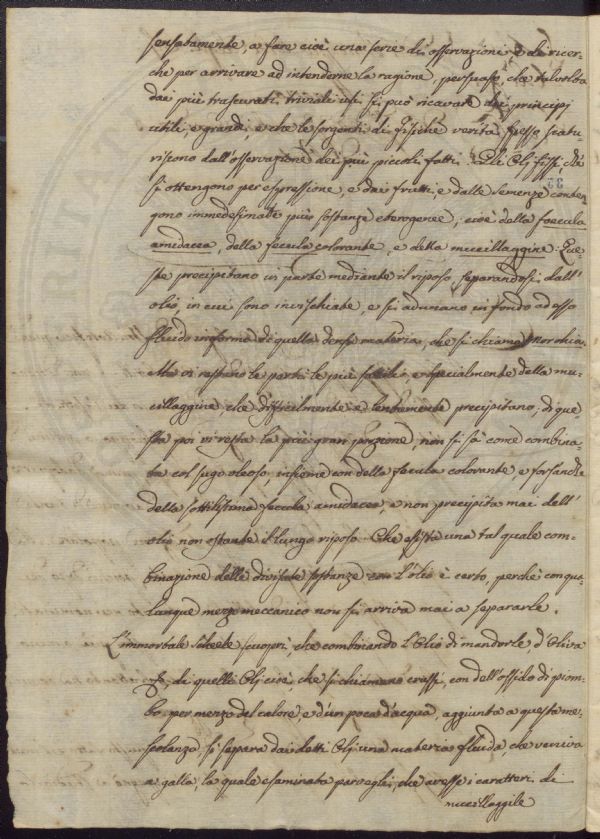 sensatamente, a fare cioè una serie di osservazioni e di ricer-
che per arrivare ad intenderne la ragione, persuaso, che talvolta
dai più trascurati, triviali usi si può ricavare dei principj
utili, e grandi, e che le sorgenti di fisiche verità spesso scatu-
riscono dall'osservazione dei più piccoli fatti. Gli Olj fissi, che
si ottengono per espressione, e dai frutti, e dalle semenze conten-
gono immedesimate più sostanze eterogenee, cioè della foecula
amidacea, della fecula colorante, e della mucillaggine: Que-
ste precipitano in parte mediante il riposo, separandosi dall'
olio, in cui sono invischiate, e si adunano in fondo ad esso
fluido in forma di quella densa materia, che si chiama Morchia.
Ma vi restano le parti le più sottili, e specialmente della mu-
cillaggine che difficilmente e lentamente precipitano; di que-
sta poi vi resta la più gran porzione, non si sà come combina-
ta col sugo oleoso, insieme con della fecula colorante, e forsanche
della sottilissima feccola amidacea, e non precipita mai dell'
olio non ostante il lungo riposo. Che esista una tal quale com-
binazione delle divisate sostanze con l'olio è certo, perchè con qua-
lunque mezzo meccanico non si arriva mai a separarle.
L'immortale Scheele scuoprì, che combinando l'Olio di mandorle, d'Oliva
&, di quelli Olj cioè, che si chiamano crassi, con dell'ossido di piom-
bo per mezzo del calore e d'un poca d'acqua, aggiunta a questa me-
scolanza si separa dai detti Olj una materia fluida, che veniva
a galla, la quale esaminata parvegli, che avesse i caratteri di
mucillaggile
33